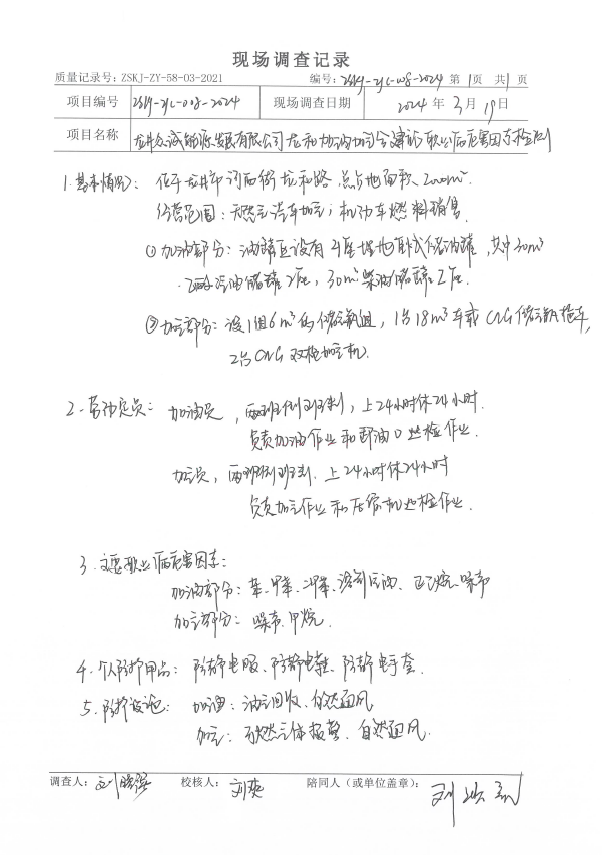 现场调查记录
质量记录号：ZSKJ-ZY-58-03-2021 编号：ZSKJ-ZYC-008-2024 第1页 共1页
项目编号 ZSKJ-ZYC-008-2024 现场调查日期 2024年3月19日
项目名称 龙井众诚能源发展有限公司龙和加油加气合建站职业病危害因素检测
1.基本情况：位于龙井市河西街龙和路，总占地面积2000m²
经营范围：天然气汽车加气；机动车燃料销售.
①加油部分：油罐区设有4座埋地卧式储油罐，其中30m³
汽油储罐2座，30m³柴油储罐2座.
②加气部分：设1组6m³的储气瓶组，1台18m³车载CNG储气瓶拖车，
2台CNG双枪加气机.
2.劳动定员：加油员，两班倒班制，上24小时休24小时.
负责加油作业和卸油口巡检作业.
加气员，两班倒班制.上24小时休24小时
负责加气作业和压缩机巡检作业.
3.主要职业病危害因素：
加油部分：苯、甲苯、二甲苯、溶剂汽油、正己烷、噪声
加气部分：噪声、甲烷.
4.个人防护用品：防静电服、防静电鞋、防静电手套.
5.防护设施：加油：油气回收、自然通风
加气：天然气体报警、自然通风.
调查人：刘 校核人：刘爽 陪同人（或单位盖章）：刘